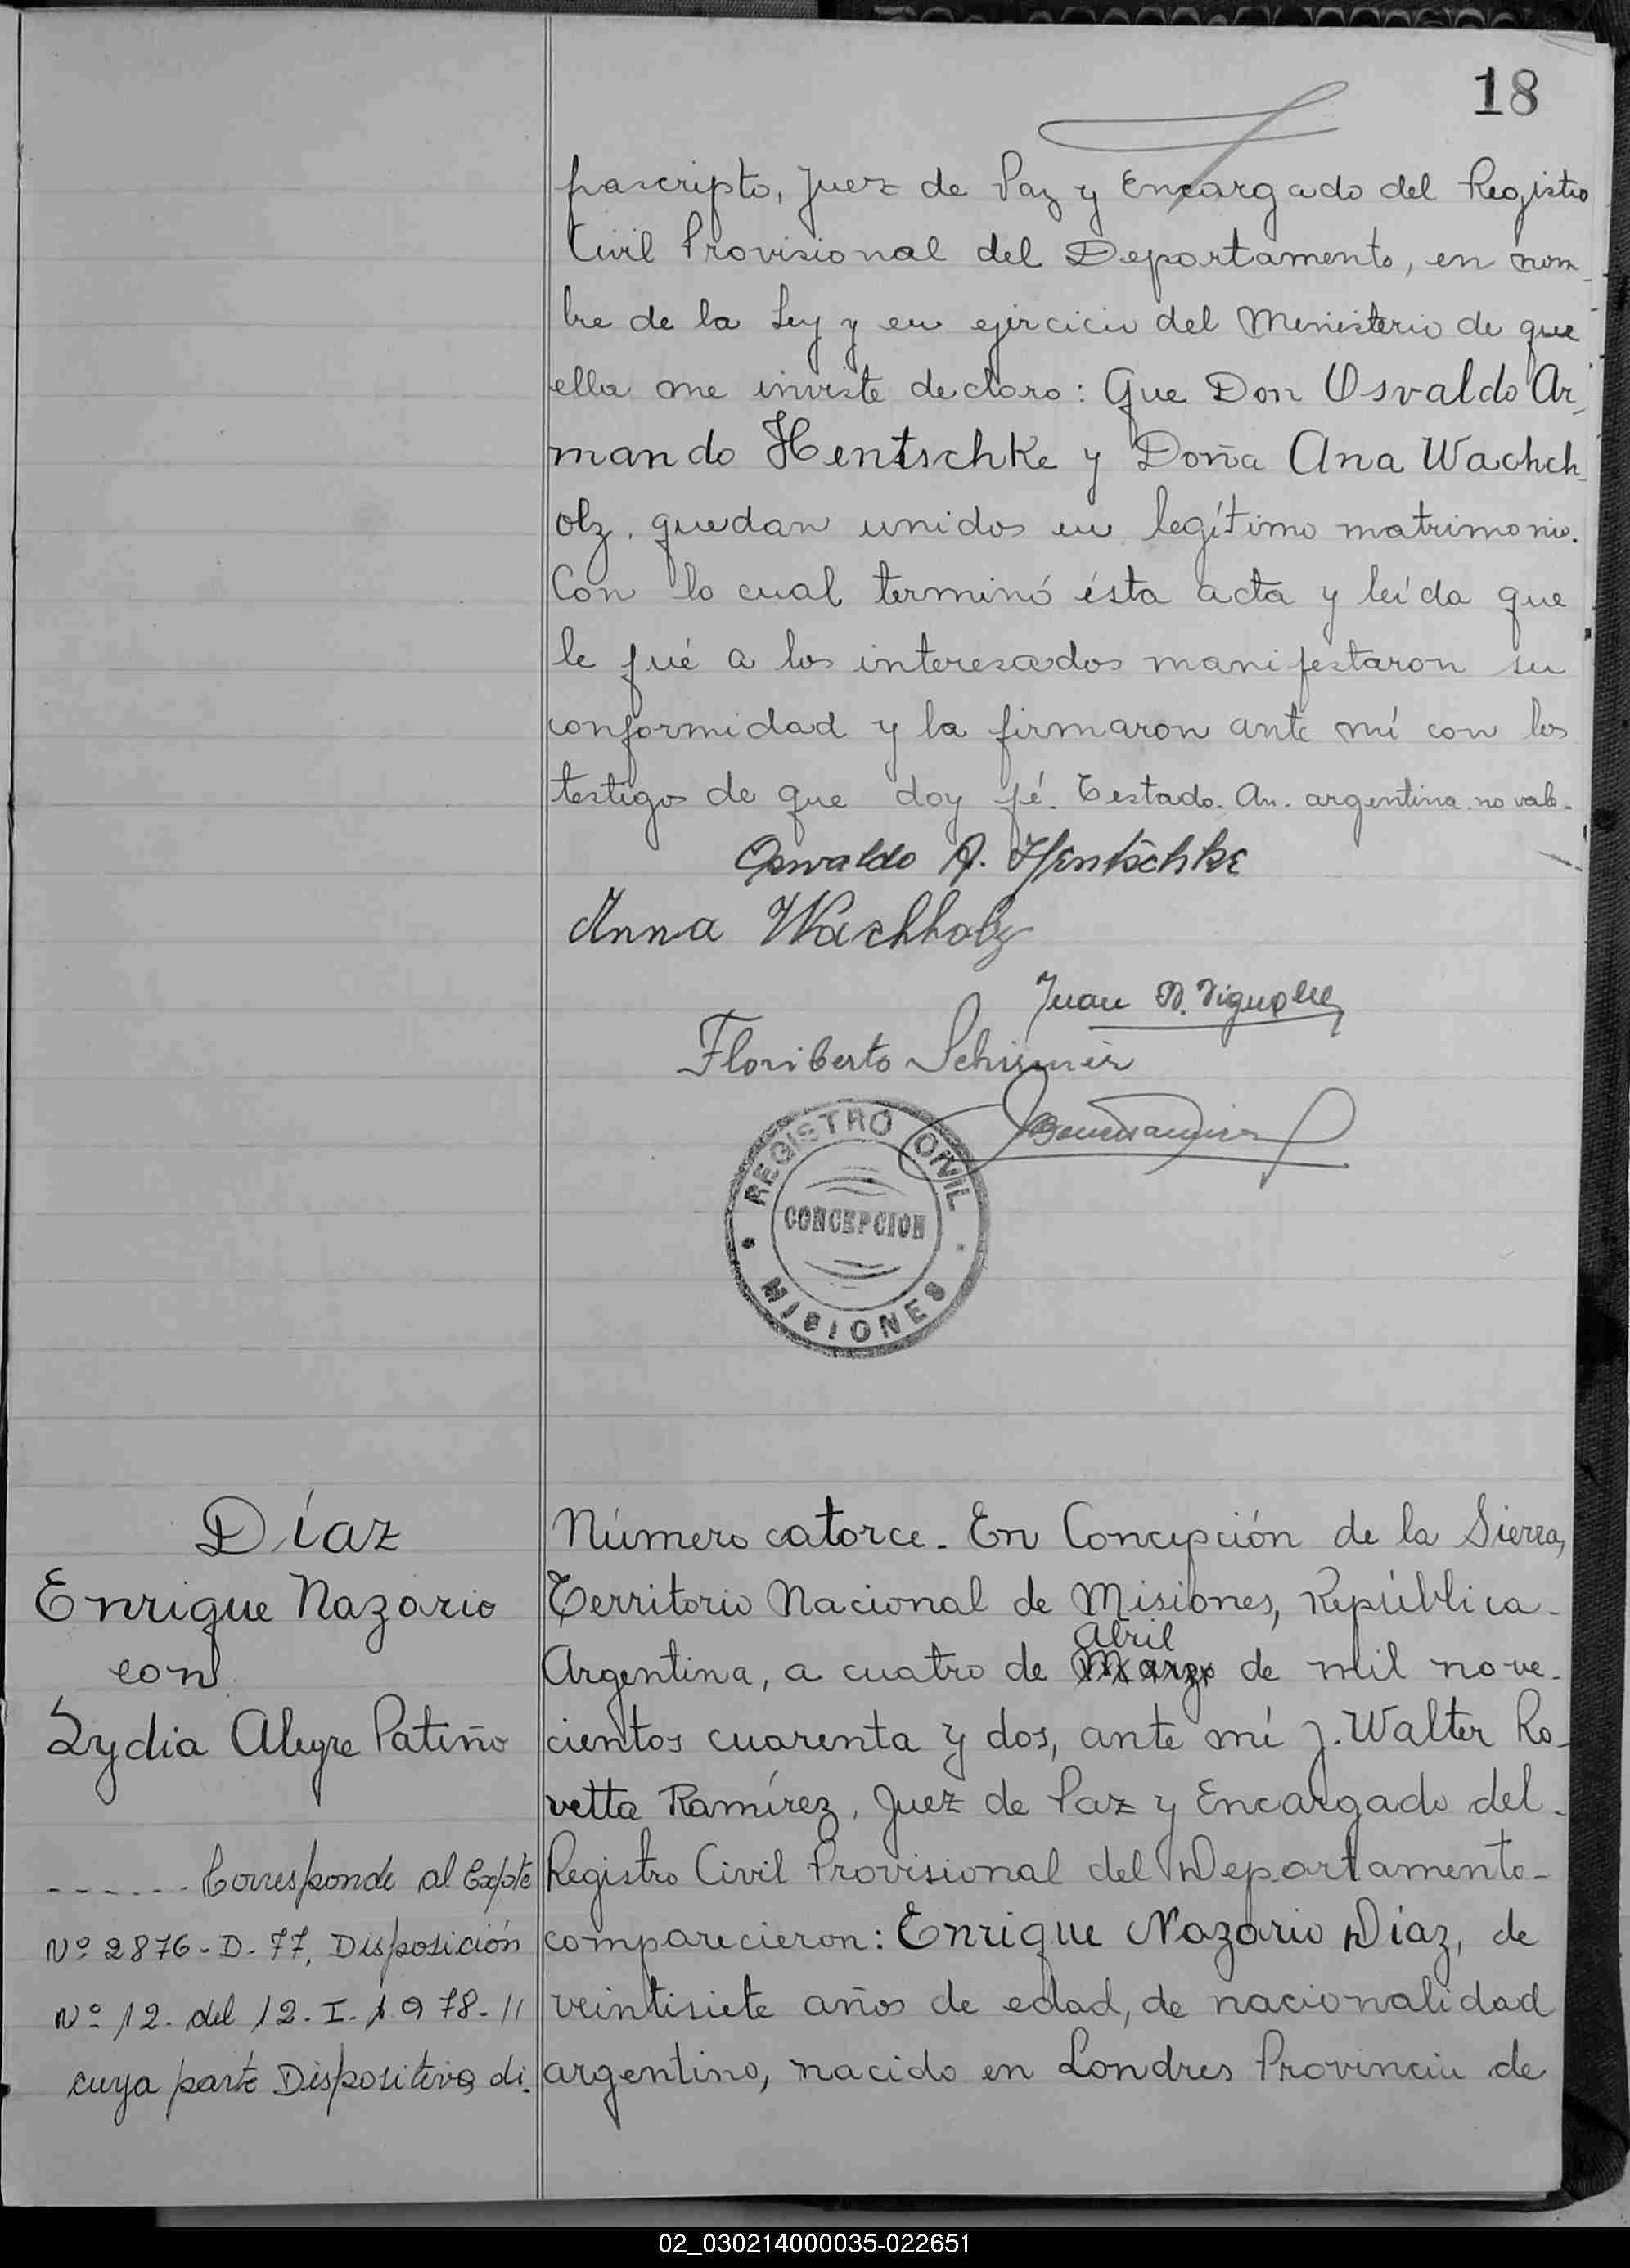 18
frascripto, Juez de Paz y Encargado del Registro
Civil Provisional del Departamento, en nom-
bre de la Ley y en ejercicio del Ministerio de que
ella me inviste declaro: Que Don Osvaldo Ar-
mando Hentschke y Doña Ana Wachch-
olz, quedan unidos en legítimo matrimonio.
Con lo cual terminó ésta acta y leída que
le fué a los interesados manifestaron su
conformidad y la firmaron ante mí con los
testigos de que doy fé. Testado. An. argentina. no vale.
Osvaldo A. Hentschke
Anna Wachholz
Juan
Floriberto
REGISTRO CIVIL
CONCEPCION
MISIONES
Díaz
Enrique Nazario
con
Lydia Alegre Patiño
------ Corresponde al Expte
Nº 2876-D-77, Disposición
Nº 12. del 12-I-1978-11
cuya parte Dispositiva di-
Número catorce. En Concepción de la Sierra,
Territorio Nacional de Misiones, República-
abril
Argentina, a cuatro de Marzo de mil nove-
cientos cuarenta y dos, ante mí J. Walter Ro-
vetta Ramírez, Juez de Paz y Encargado del-
Registro Civil Provisional del Departamento-
comparecieron: Enrique Nazario Díaz, de
veintisiete años de edad, de nacionalidad
argentino, nacido en Londres Provincia de
02_030214000035-022651